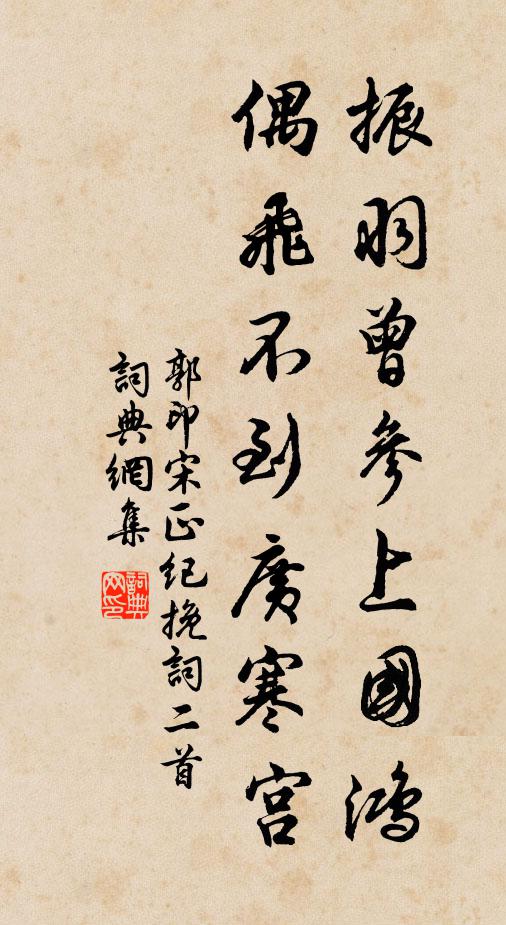 振羽曾參上國鴻
偶飛不到廣寒宮
郭印宋正紀挽詞二首
詞典網集
詞典网印